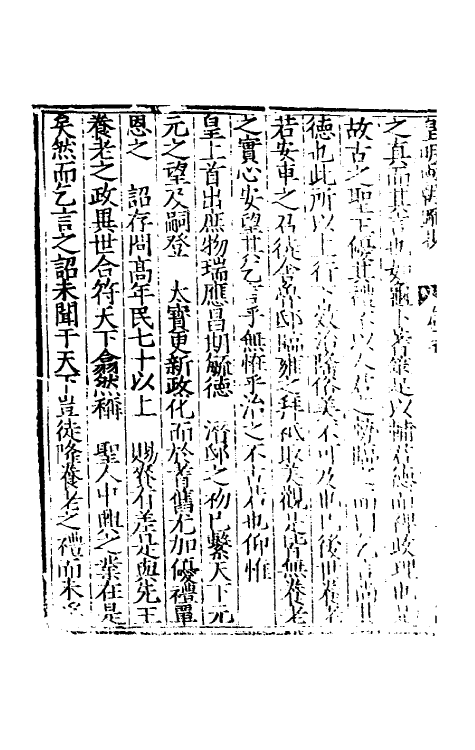 皇明疏鈔
之真而其言也如龜卜蓍筮是以輔君德而裨政理也
故古之聖王修其禮
德也此所以上行下效治隆俗美不可及也已後世養老
若安車之召徒舍魯邸臨雍之拜祇取美觀是皆無養老
之實心安望其乞言乎無惟乎治之不古若也仰惟
皇上首出庶物瑞應昌期毓德　潛邸之初已繫天下元
元之望及嗣登　大寶更新政化而於耆舊尤加優禮覃
恩之　詔存問高年民七十以上　賜賚有差是與先王
養老之政異世合符天下翕然稱　聖人中興之業在是
矣然而乞言之詔未聞于天下豈徒隆養老之禮而未